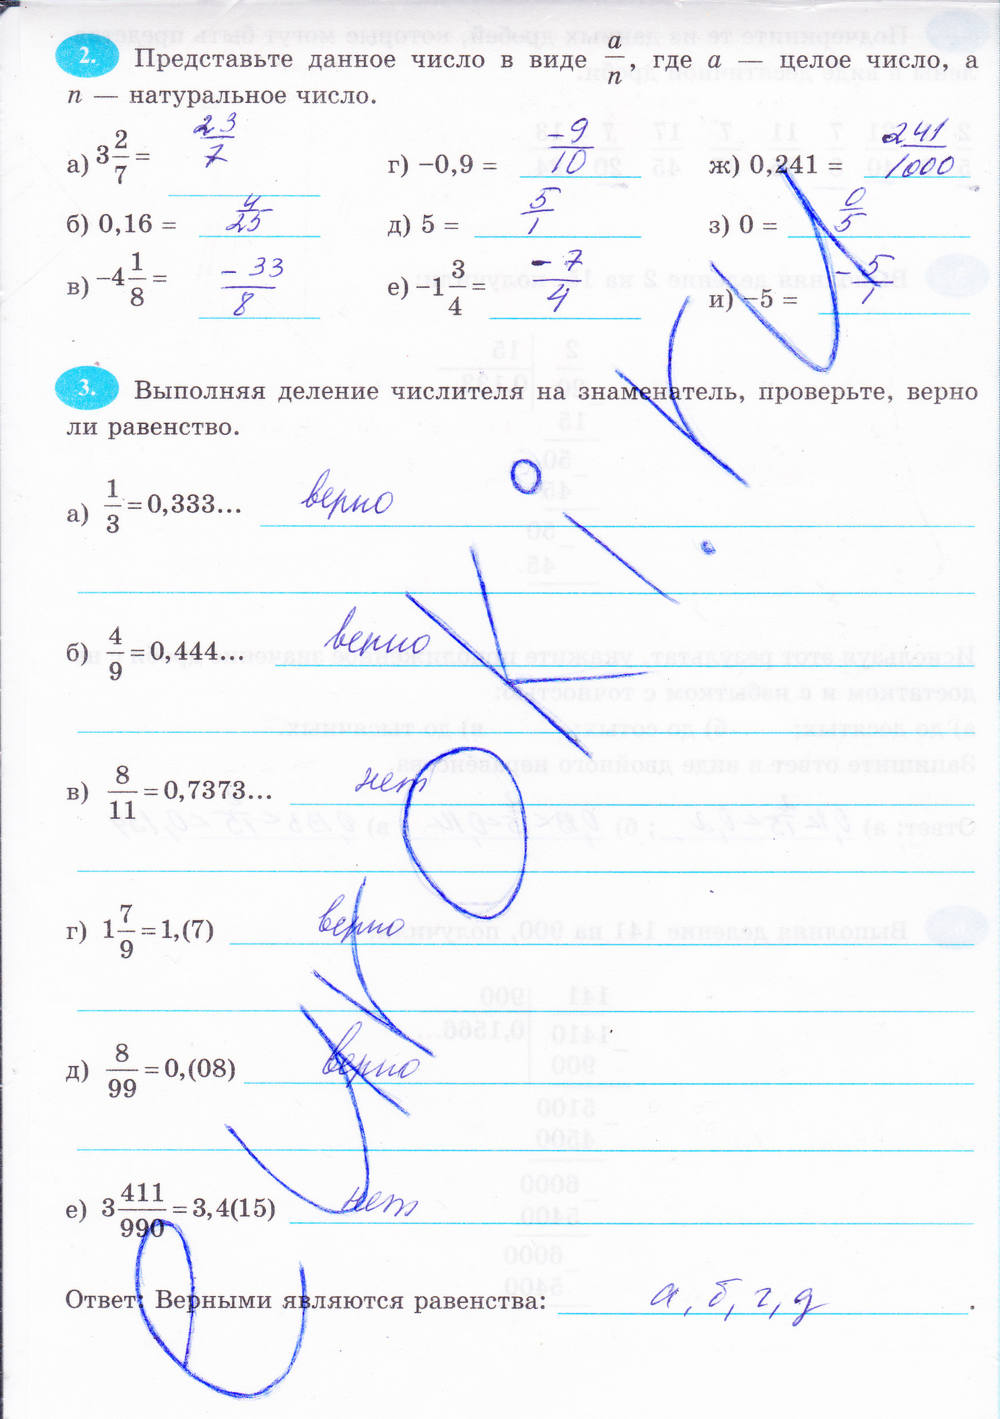 2. Представьте данное число в виде a/n, где a — целое число, а
n — натуральное число.
а) 3 2/7 = 23/7
г) −0,9 = −9/10
ж) 0,241 = 241/1000
б) 0,16 = 4/25
д) 5 = 5/1
з) 0 = 0/5
в) −4 1/8 = −33/8
е) −1 3/4 = −7/4
и) −5 = −5/1
3. Выполняя деление числителя на знаменатель, проверьте, верно
ли равенство.
а) 1/3 = 0,333... верно
б) 4/9 = 0,444... верно
в) 8/11 = 0,7373... нет
г) 1 7/9 = 1,(7) верно
д) 8/99 = 0,(08) верно
е) 3 411/990 = 3,4(15) нет
Ответ: Верными являются равенства: а, б, г, д.